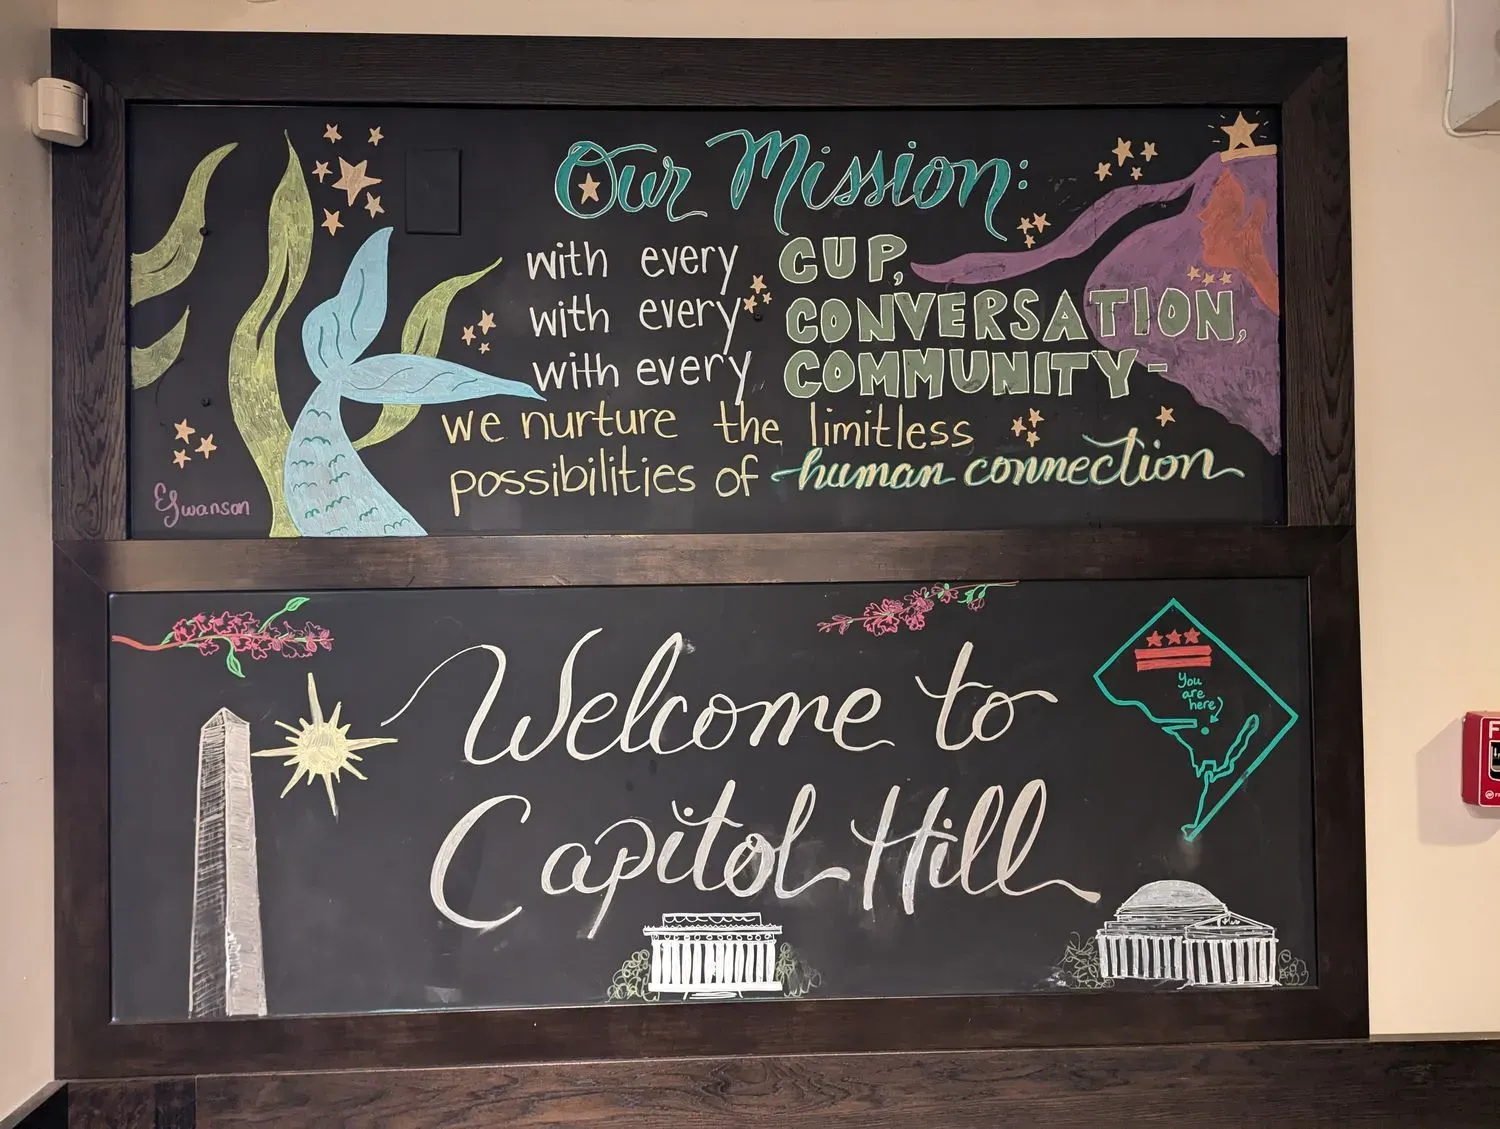 Our Mission:
with every CUP,
with every CONVERSATION,
with every COMMUNITY-
we nurture the limitless
possibilities of human connection
ESwanson
Welcome to
Capitol Hill
You
are
here)
F